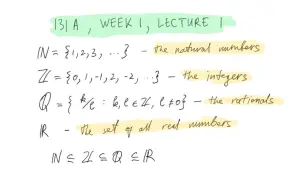 131A, WEEK 1, LECTURE 1
ℕ = {1,2,3, ...} - the natural numbers
ℤ = {0,1,-1,2,-2, ...} - the integers
ℚ = { k/ℓ : k,ℓ ∈ ℤ, ℓ ≠ 0} - the rationals
ℝ - the set of all real numbers
ℕ ⊆ ℤ ⊆ ℚ ⊆ ℝ